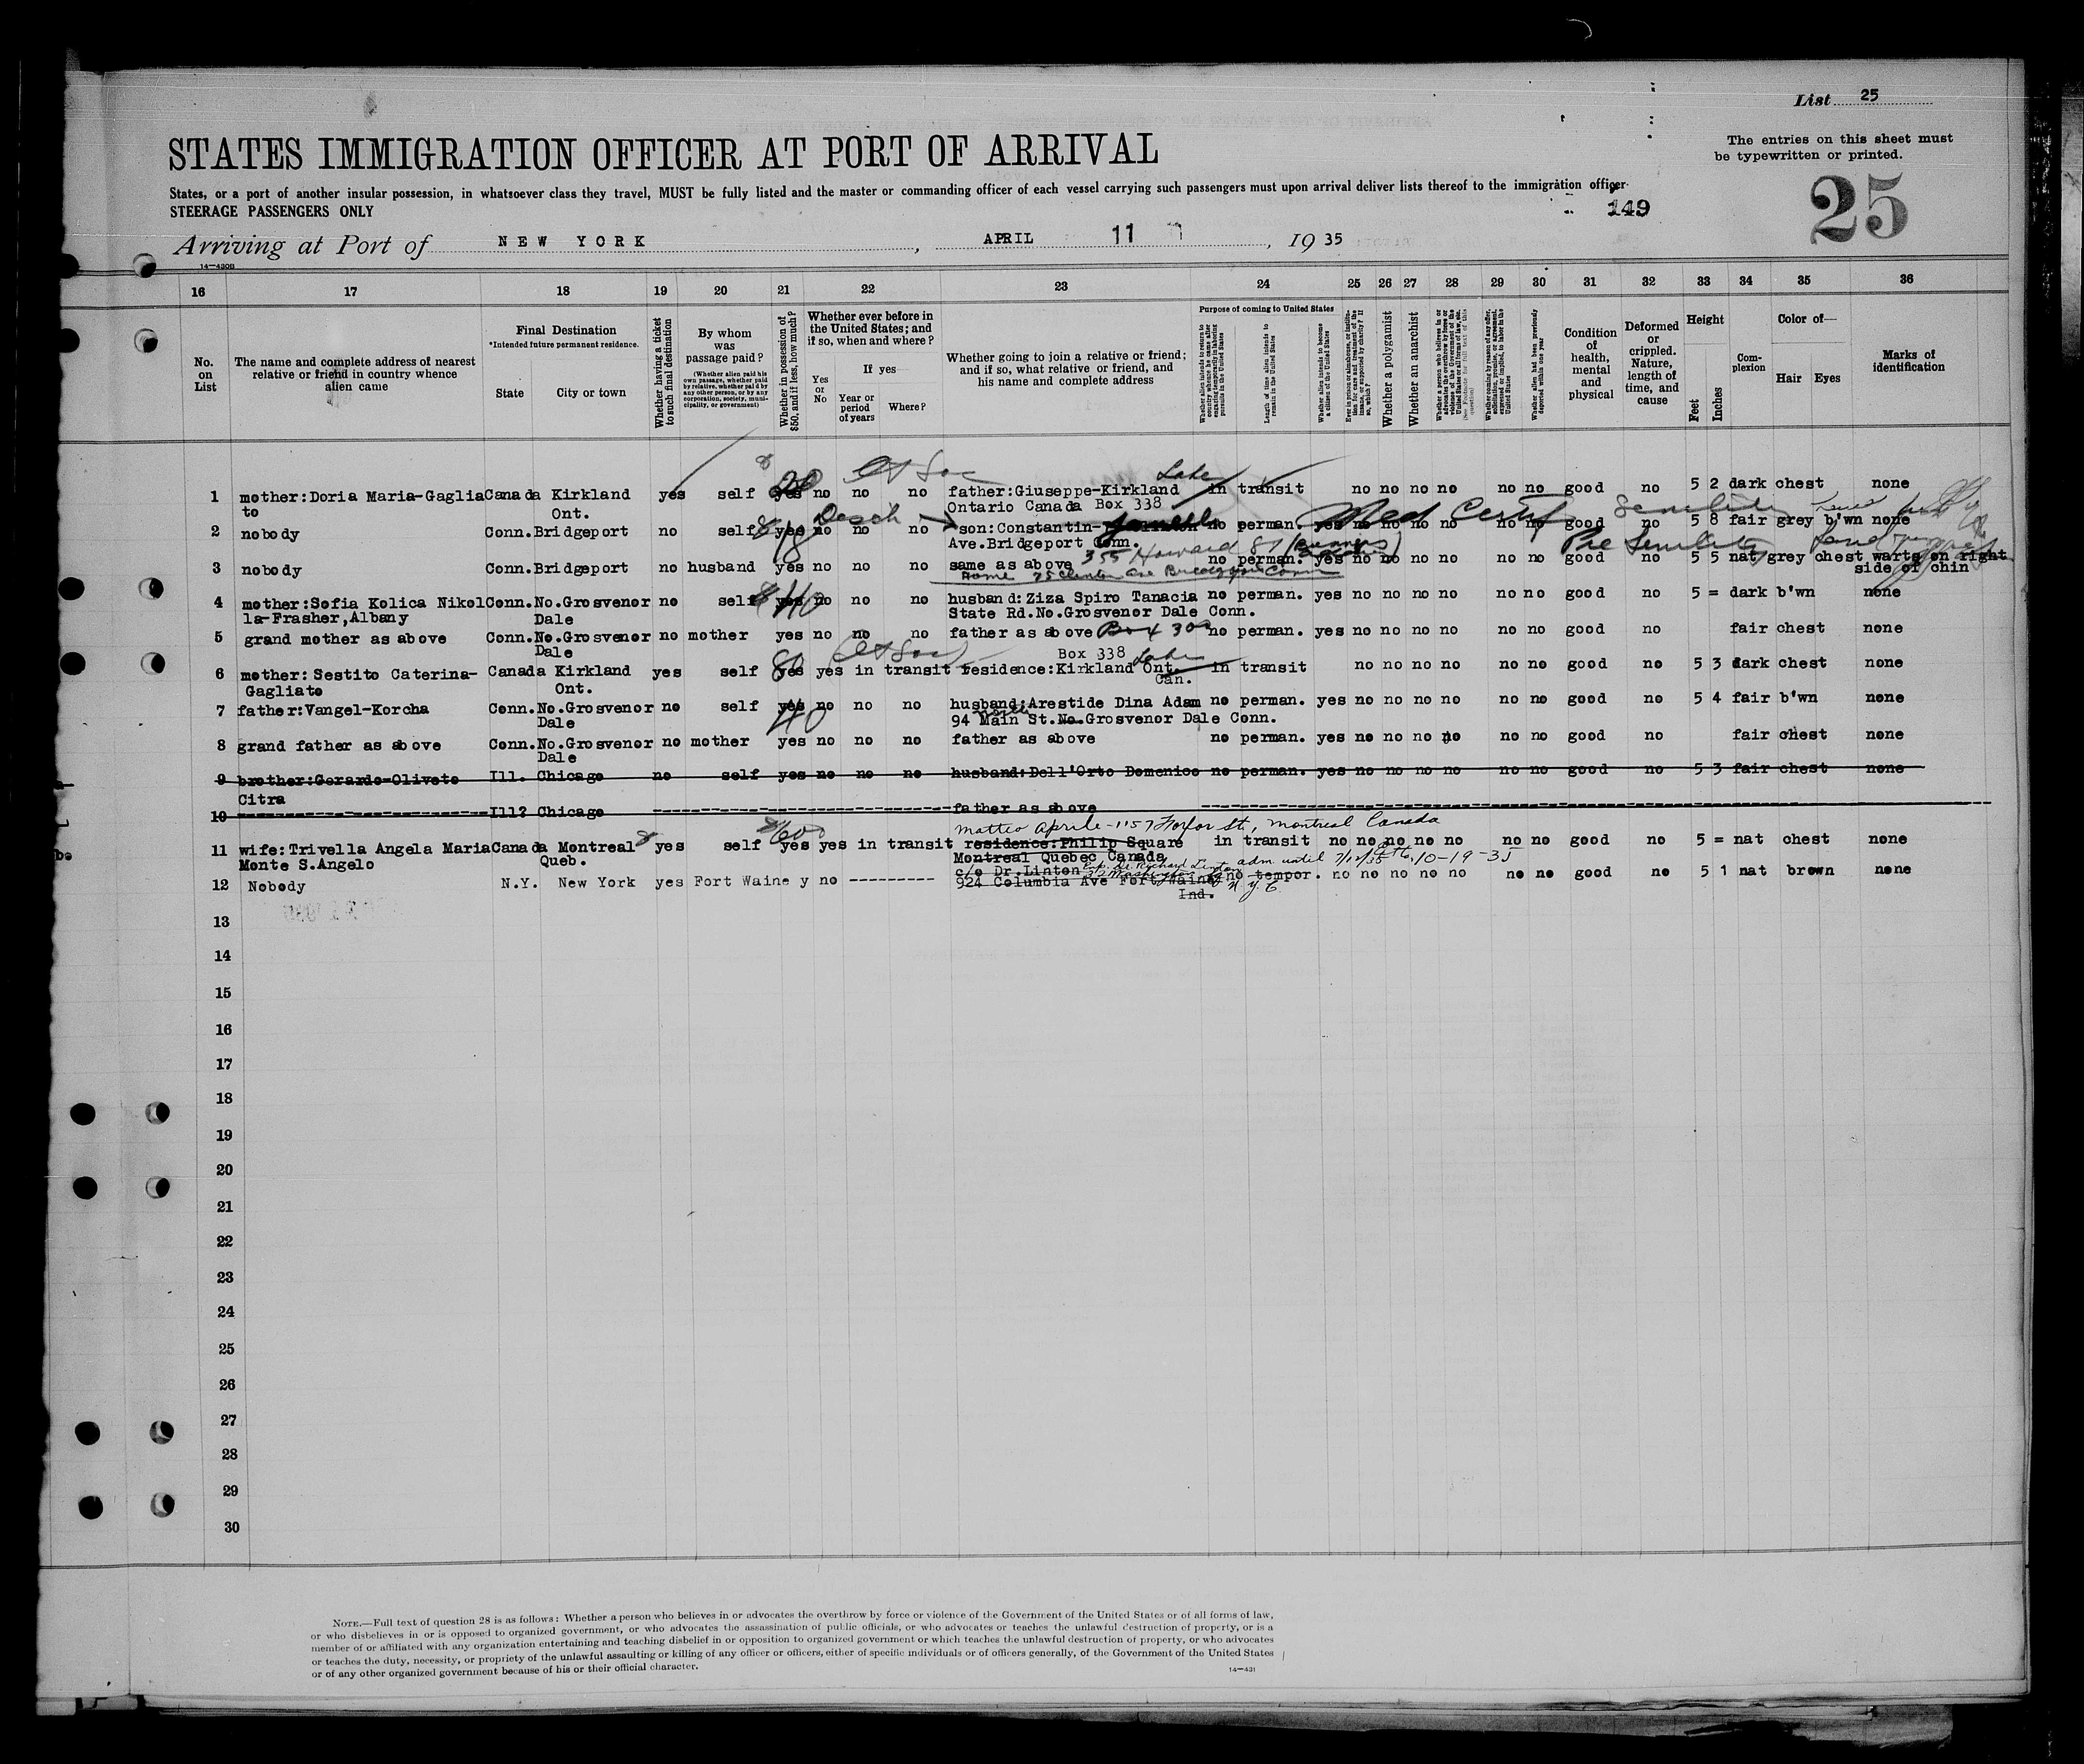 List 25
STATES IMMIGRATION OFFICER AT PORT OF ARRIVAL
The entries on this sheet must
be typewritten or printed.
States, or a port of another insular possession, in whatsoever class they travel, MUST be fully listed and the master or commanding officer of each vessel carrying such passengers must upon arrival deliver lists thereof to the immigration officer
STEERAGE PASSENGERS ONLY
149
25
Arriving at Port of NEW YORK, APRIL 11, 1935
14—430B
16 17 18 19 20 21 22 23 24 25 26 27 28 29 30 31 32 33 34 35 36
No. on List
The name and complete address of nearest relative or friend in country whence alien came
Final Destination
*Intended future permanent residence.
State City or town
Whether having a ticket to such final destination
By whom was passage paid?
(Whether alien paid his own passage, whether paid by relative, whether paid by any other person, or by any corporation, society, municipality, or government)
Whether in possession of $50, and if less, how much?
Whether ever before in the United States; and if so, when and where?
Yes or No
If yes—
Year or period of years
Where?
Whether going to join a relative or friend; and if so, what relative or friend, and his name and complete address
Purpose of coming to United States
Whether alien intends to return to country whence he came after engaging temporarily in laboring pursuits in the United States
Length of time alien intends to remain in the United States
Whether alien intends to become a citizen of the United States
Whether a polygamist
Whether an anarchist
Condition of health, mental and physical
Deformed or crippled. Nature, length of time, and cause
Height
Feet Inches
Complexion
Color of—
Hair Eyes
Marks of identification
1 mother:Doria Maria-Gaglia Canada Kirkland yes self yes no no no father:Giuseppe-Kirkland Lake in transit no no no no no no good no 5 2 dark chest none
to Ont. Ontario Canada Box 338
2 nobody Conn. Bridgeport no self yes no no no son:Constantin- no perman. yes no no no no no no good no 5 8 fair grey b'wn none
Med Certif Senility
Ave.Bridgeport Conn.
355 Howard
Pre Senility
3 nobody Conn. Bridgeport no husband yes no no no same as above no perman. yes no no no no no no good no 5 5 nat grey chest warts on right
side of chin
4 mother:Sofia Kolica Nikol Conn. No.Grosvenor no self yes no no no husband:Ziza Spiro Tanacia no perman. yes no no no no no no good no 5 = dark b'wn none
la-Frasher,Albany Dale State Rd.No.Grosvenor Dale Conn.
5 grand mother as above Conn. No.Grosvenor no mother yes no no no father as above Box 300 no perman. yes no no no no no no good no fair chest none
Dale Box 338 Lake
6 mother: Sestito Caterina- Canada Kirkland yes self yes 80 yes in transit residence:Kirkland Ont. in transit no no no no no no good no 5 3 dark chest none
Gagliato Ont. Can.
7 father:Vangel-Korcha Conn. No.Grosvenor no self yes no no no husband:Arestide Dina Adam no perman. yes no no no no no no good no 5 4 fair b'wn none
Dale 40 94 Main St.No.Grosvenor Dale Conn.
8 grand father as above Conn. No.Grosvenor no mother yes no no no father as above no perman. yes no no no no no no good no fair chest none
Dale
9 brother:Gerardo-Oliveto Ill. Chicago no self yes no no no husband:Dell'Orto Domenico no perman. yes no no no no no no good no 5 3 fair chest none
Citra
10 Ill? Chicago father as above
Matteo Aprile - 1157 St, Montreal Canada
11 wife:Trivella Angela Maria Canada Montreal yes self yes yes in transit residence:Philip Square in transit no no no no no no good no 5 = nat chest none
Monte S.Angelo Queb. Montreal Quebec Canada
adm until 10-19-35
c/o Dr.Linton
12 Nobody N.Y. New York yes Fort Waine y no --------- 924 Columbia Ave Fort Waine no tempor. no no no no no no good no 5 1 nat brown none
Ind. N.Y.C
13
14
15
16
17
18
19
20
21
22
23
24
25
26
27
28
29
30
NOTE.—Full text of question 28 is as follows: Whether a person who believes in or advocates the overthrow by force or violence of the Government of the United States or of all forms of law,
or who disbelieves in or is opposed to organized government, or who advocates the assassination of public officials, or who advocates or teaches the unlawful destruction of property, or is a
member of or affiliated with any organization entertaining and teaching disbelief in or opposition to organized government or which teaches the unlawful destruction of property, or who advocates
or teaches the duty, necessity, or propriety of the unlawful assaulting or killing of any officer or officers, either of specific individuals or of officers generally, of the Government of the United States
or of any other organized government because of his or their official character.
14—431